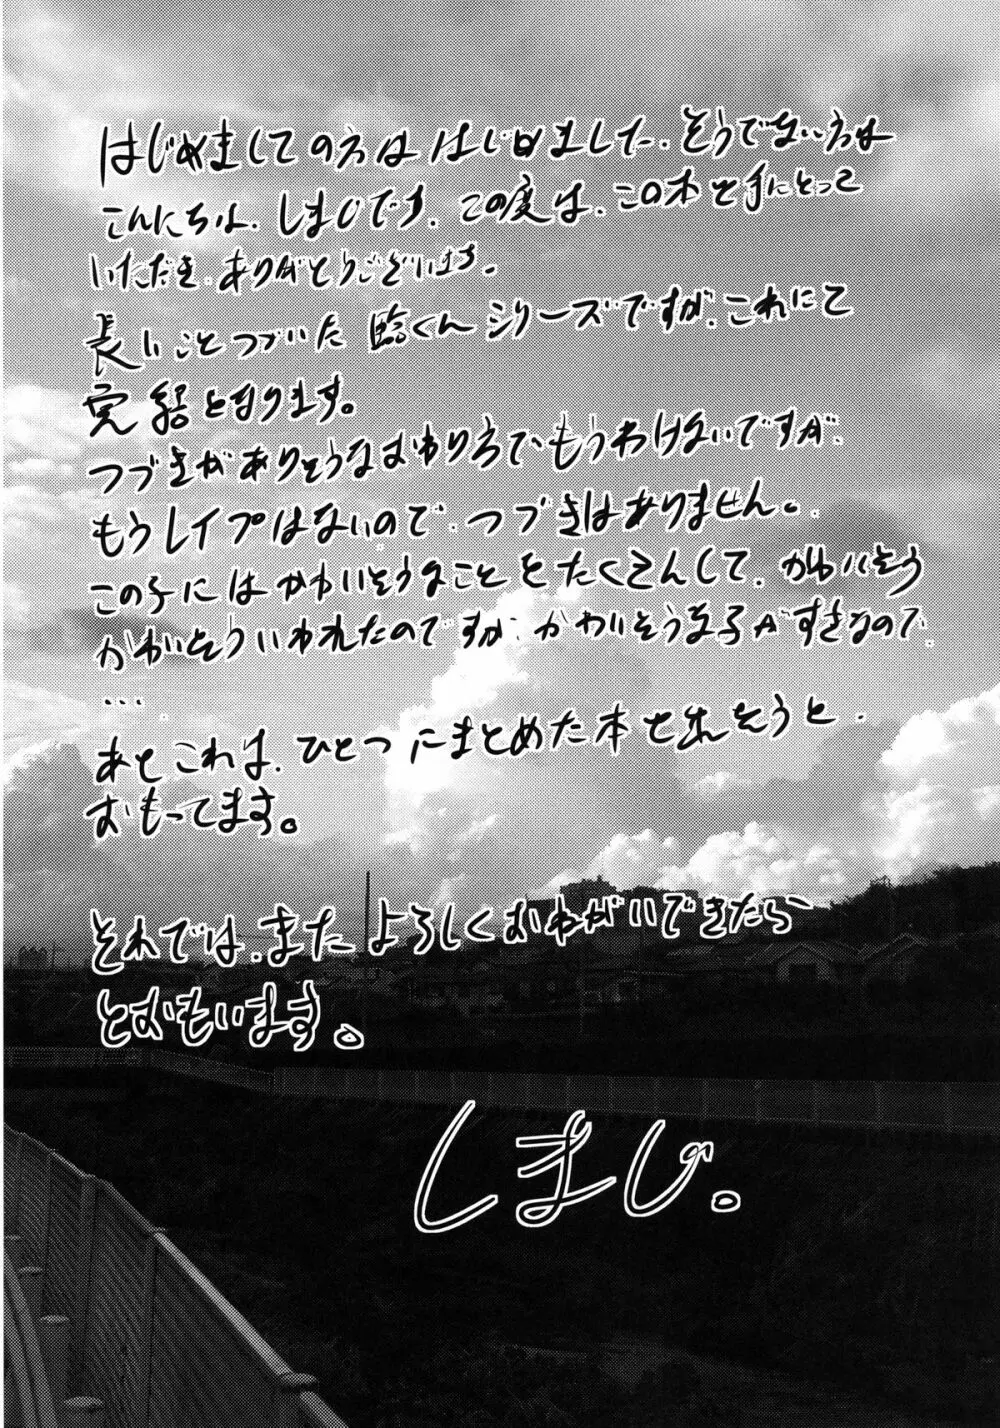 はじめましての方ははじめました、そうでない方は
こんにちは、しまじです。この度は、この本を手にとって
いただき、ありがとうございます。
長いことつづいた臨くんシリーズですが、これにて
完結となります。
つづきがありそうなおわり方でもうわけないですが、
もうレイプはないので、つづきはありません。
この子にはかわいそうなことをたくさんして、かわいそう
かわいそういわれたのですが、かわいそうな子がすきなので
...
あとこれは、ひとつにまとめた本を出そうと、
おもってます。
それでは、またよろしくおねがいできたら
とおもいます。
しまじ。